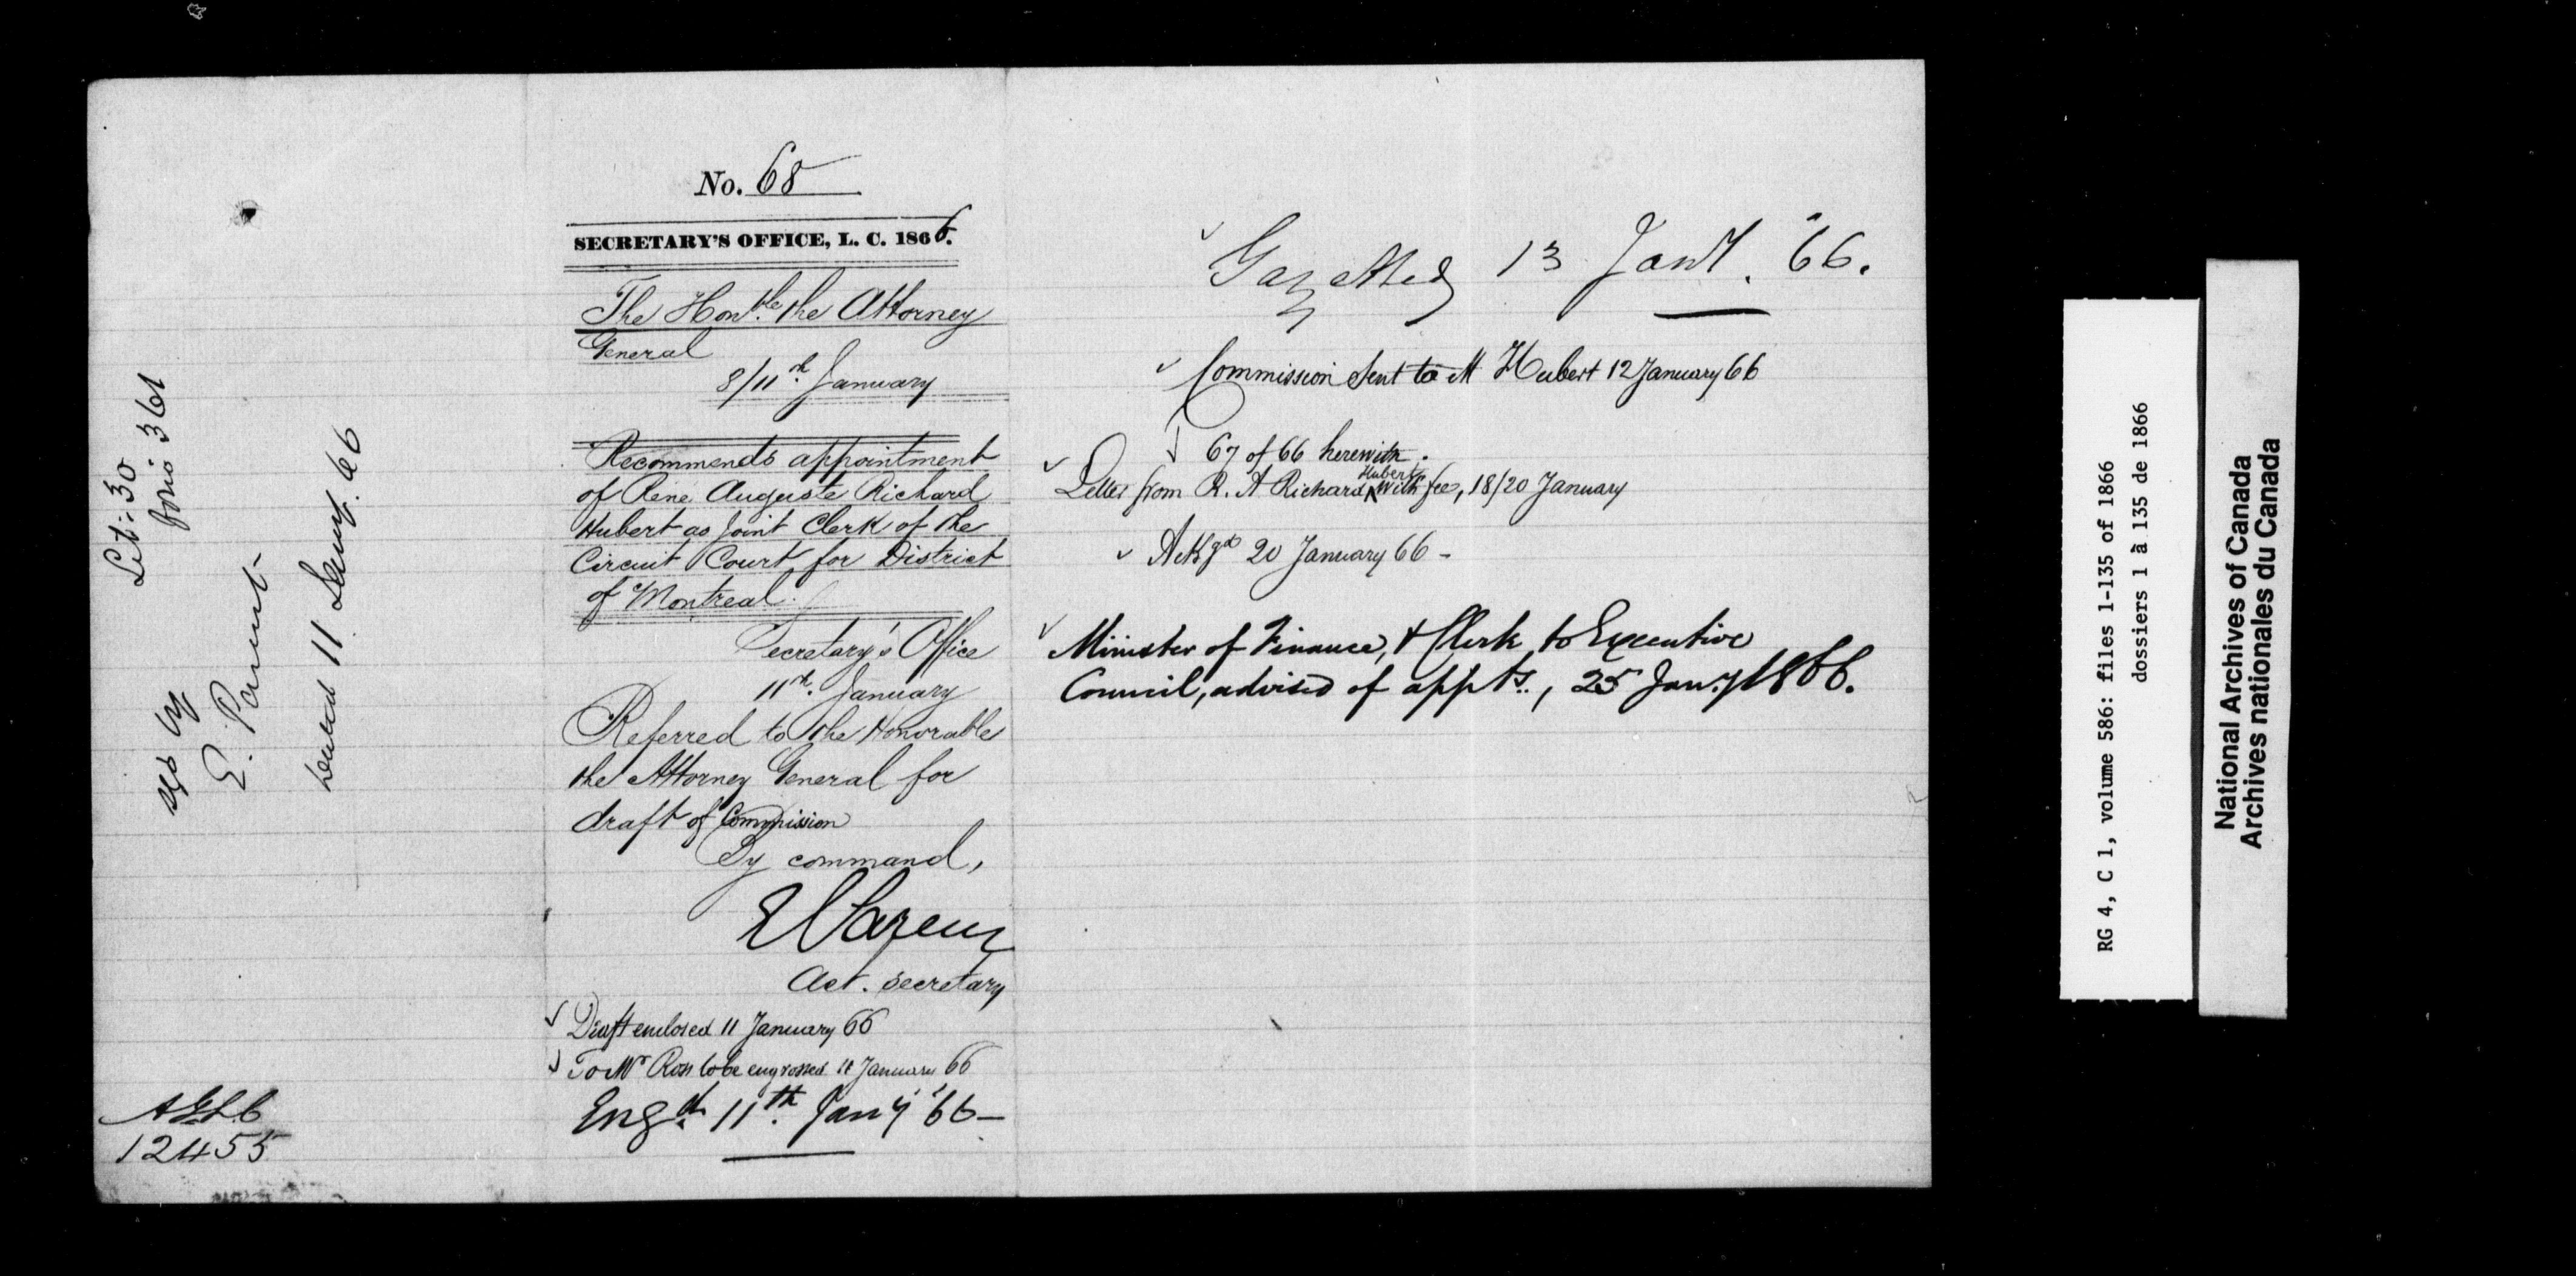 Lib: 30
folio 361
Sgd by
E. Parent
Dated 11 Jany. 66
AGLC
12455
No. 68
SECRETARY'S OFFICE, L. C. 1866.
The Honble. the Attorney
General
8/11th. January
Recommends appointment
of René Auguste Richard
Hubert as Joint Clerk of the
Circuit Court for District
of Montreal.
Secretary's Office
11th. January
Referred to the Honorable
the Attorney General for
draft of Commission
By command,
E Parent
Act. Secretary
✓ Draft enclosed 11 January 66
✓ To Mr Ross to be engrossed 11 January 66
Engd. 11th. Jany '66-
✓ Gazetted 13 Jany. '66.
✓ Commission Sent to M Hubert 12 January 66
✓ 67 of 66 herewith.
✓ Letter from R. A Richard Hubert with fee, 18/20 January
✓ Ackgd 20 January 66-
✓ Minister of Finance, & Clerk to Executive
Council, advised of appts., 25 Jany 1866.
RG 4, C 1, volume 586: files 1-135 of 1866
dossiers 1 à 135 de 1866
National Archives of Canada
Archives nationales du Canada